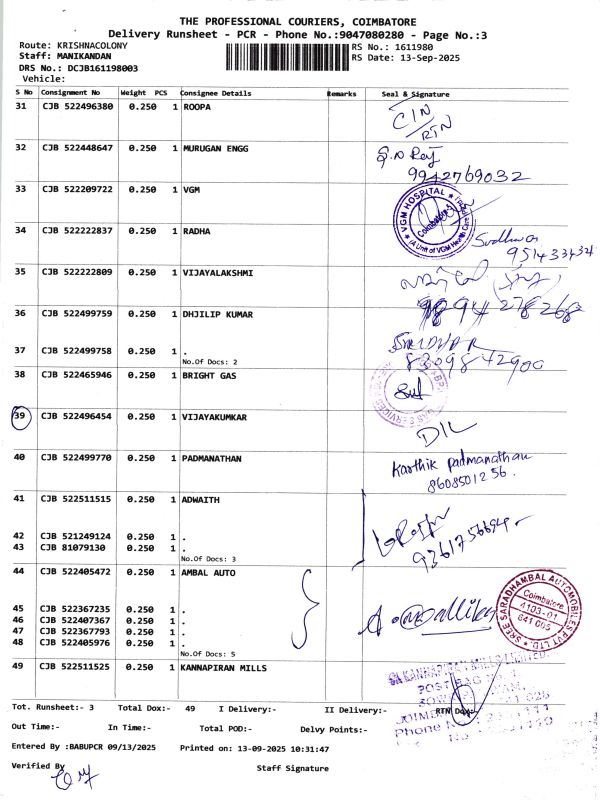 THE PROFESSIONAL COURIERS, COIMBATORE
Delivery Runsheet - PCR - Phone No.:9047080280 - Page No.:3
Route: KRISHNACOLONY RS No.: 1611980
Staff: MANIKANDAN RS Date: 13-Sep-2025
DRS No.: DCJB161198003
Vehicle:
S No Consignment No Weight PCS Consignee Details Remarks Seal & Signature
31 CJB 522496380 0.250 1 ROOPA
CIN
RTN
32 CJB 522448647 0.250 1 MURUGAN ENGG
9942769032
33 CJB 522209722 0.250 1 VGM
VGM HOSPITAL
Coimbatore
(A Unit of VGM Health Care
34 CJB 522222837 0.250 1 RADHA
35 CJB 522222809 0.250 1 VIJAYALAKSHMI
36 CJB 522499759 0.250 1 DHJILIP KUMAR
9894278268
37 CJB 522499758 0.250 1 .
No.Of Docs: 2
8309842900
38 CJB 522465946 0.250 1 BRIGHT GAS
39 CJB 522496454 0.250 1 VIJAYAKUMKAR
DIL
40 CJB 522499770 0.250 1 PADMANATHAN
Karthik Padmanathan
8608501256.
41 CJB 522511515 0.250 1 ADWAITH
42 CJB 521249124 0.250 1 .
43 CJB 81079130 0.250 1 .
No.Of Docs: 3
9361756694
44 CJB 522405472 0.250 1 AMBAL AUTO
SREE SARADHAMBAL AUTOMOBILES PVT LTD
Coimbatore
4103-01
641 005
45 CJB 522367235 0.250 1 .
46 CJB 522407367 0.250 1 .
47 CJB 522367793 0.250 1 .
48 CJB 522405976 0.250 1 .
No.Of Docs: 5
49 CJB 522511525 0.250 1 KANNAPIRAN MILLS
KANNAPIRAN MILLS LIMITED
POST BAG No.
Tot. Runsheet:- 3 Total Dox:- 49 I Delivery:- II Delivery:- RTN Dox:-
Out Time:- In Time:- Total POD:- Delvy Points:-
Phone No
Entered By :BABUPCR 09/13/2025 Printed on: 13-09-2025 10:31:47
Verified By
Staff Signature